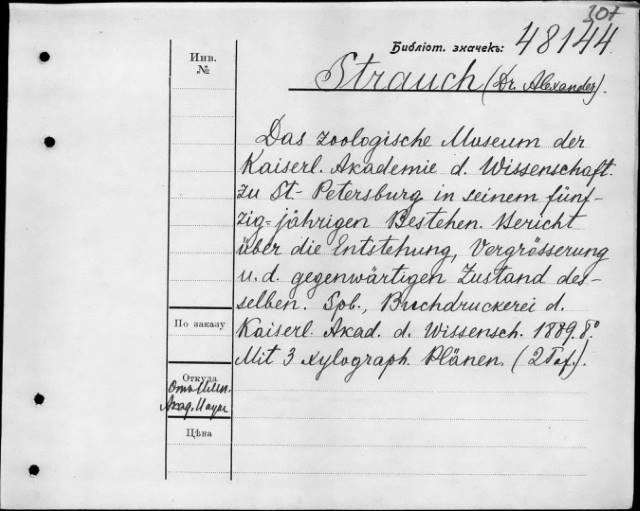 107
Библіот. значекъ: 48144.
Инв.
№
Strauch (Dr. Alexander).
Das zoologische Museum der
Kaiserl. Akademie d. Wissenschaft.
zu St.- Petersburg in seinem fünf-
zig=jährigen Bestehen. Bericht
über die Entstehung, Vergrösserung
u. d. gegenwärtigen Zustand des-
selben. Spb., Buchdruckerei d.
Kaiserl. Akad. d. Wissensch. 1889. 8.°
Mit 3 xylograph. Plänen. (2 Taf.).
По заказу
Откуда
Отъ Имп.
Акад. Наукъ
Цѣна